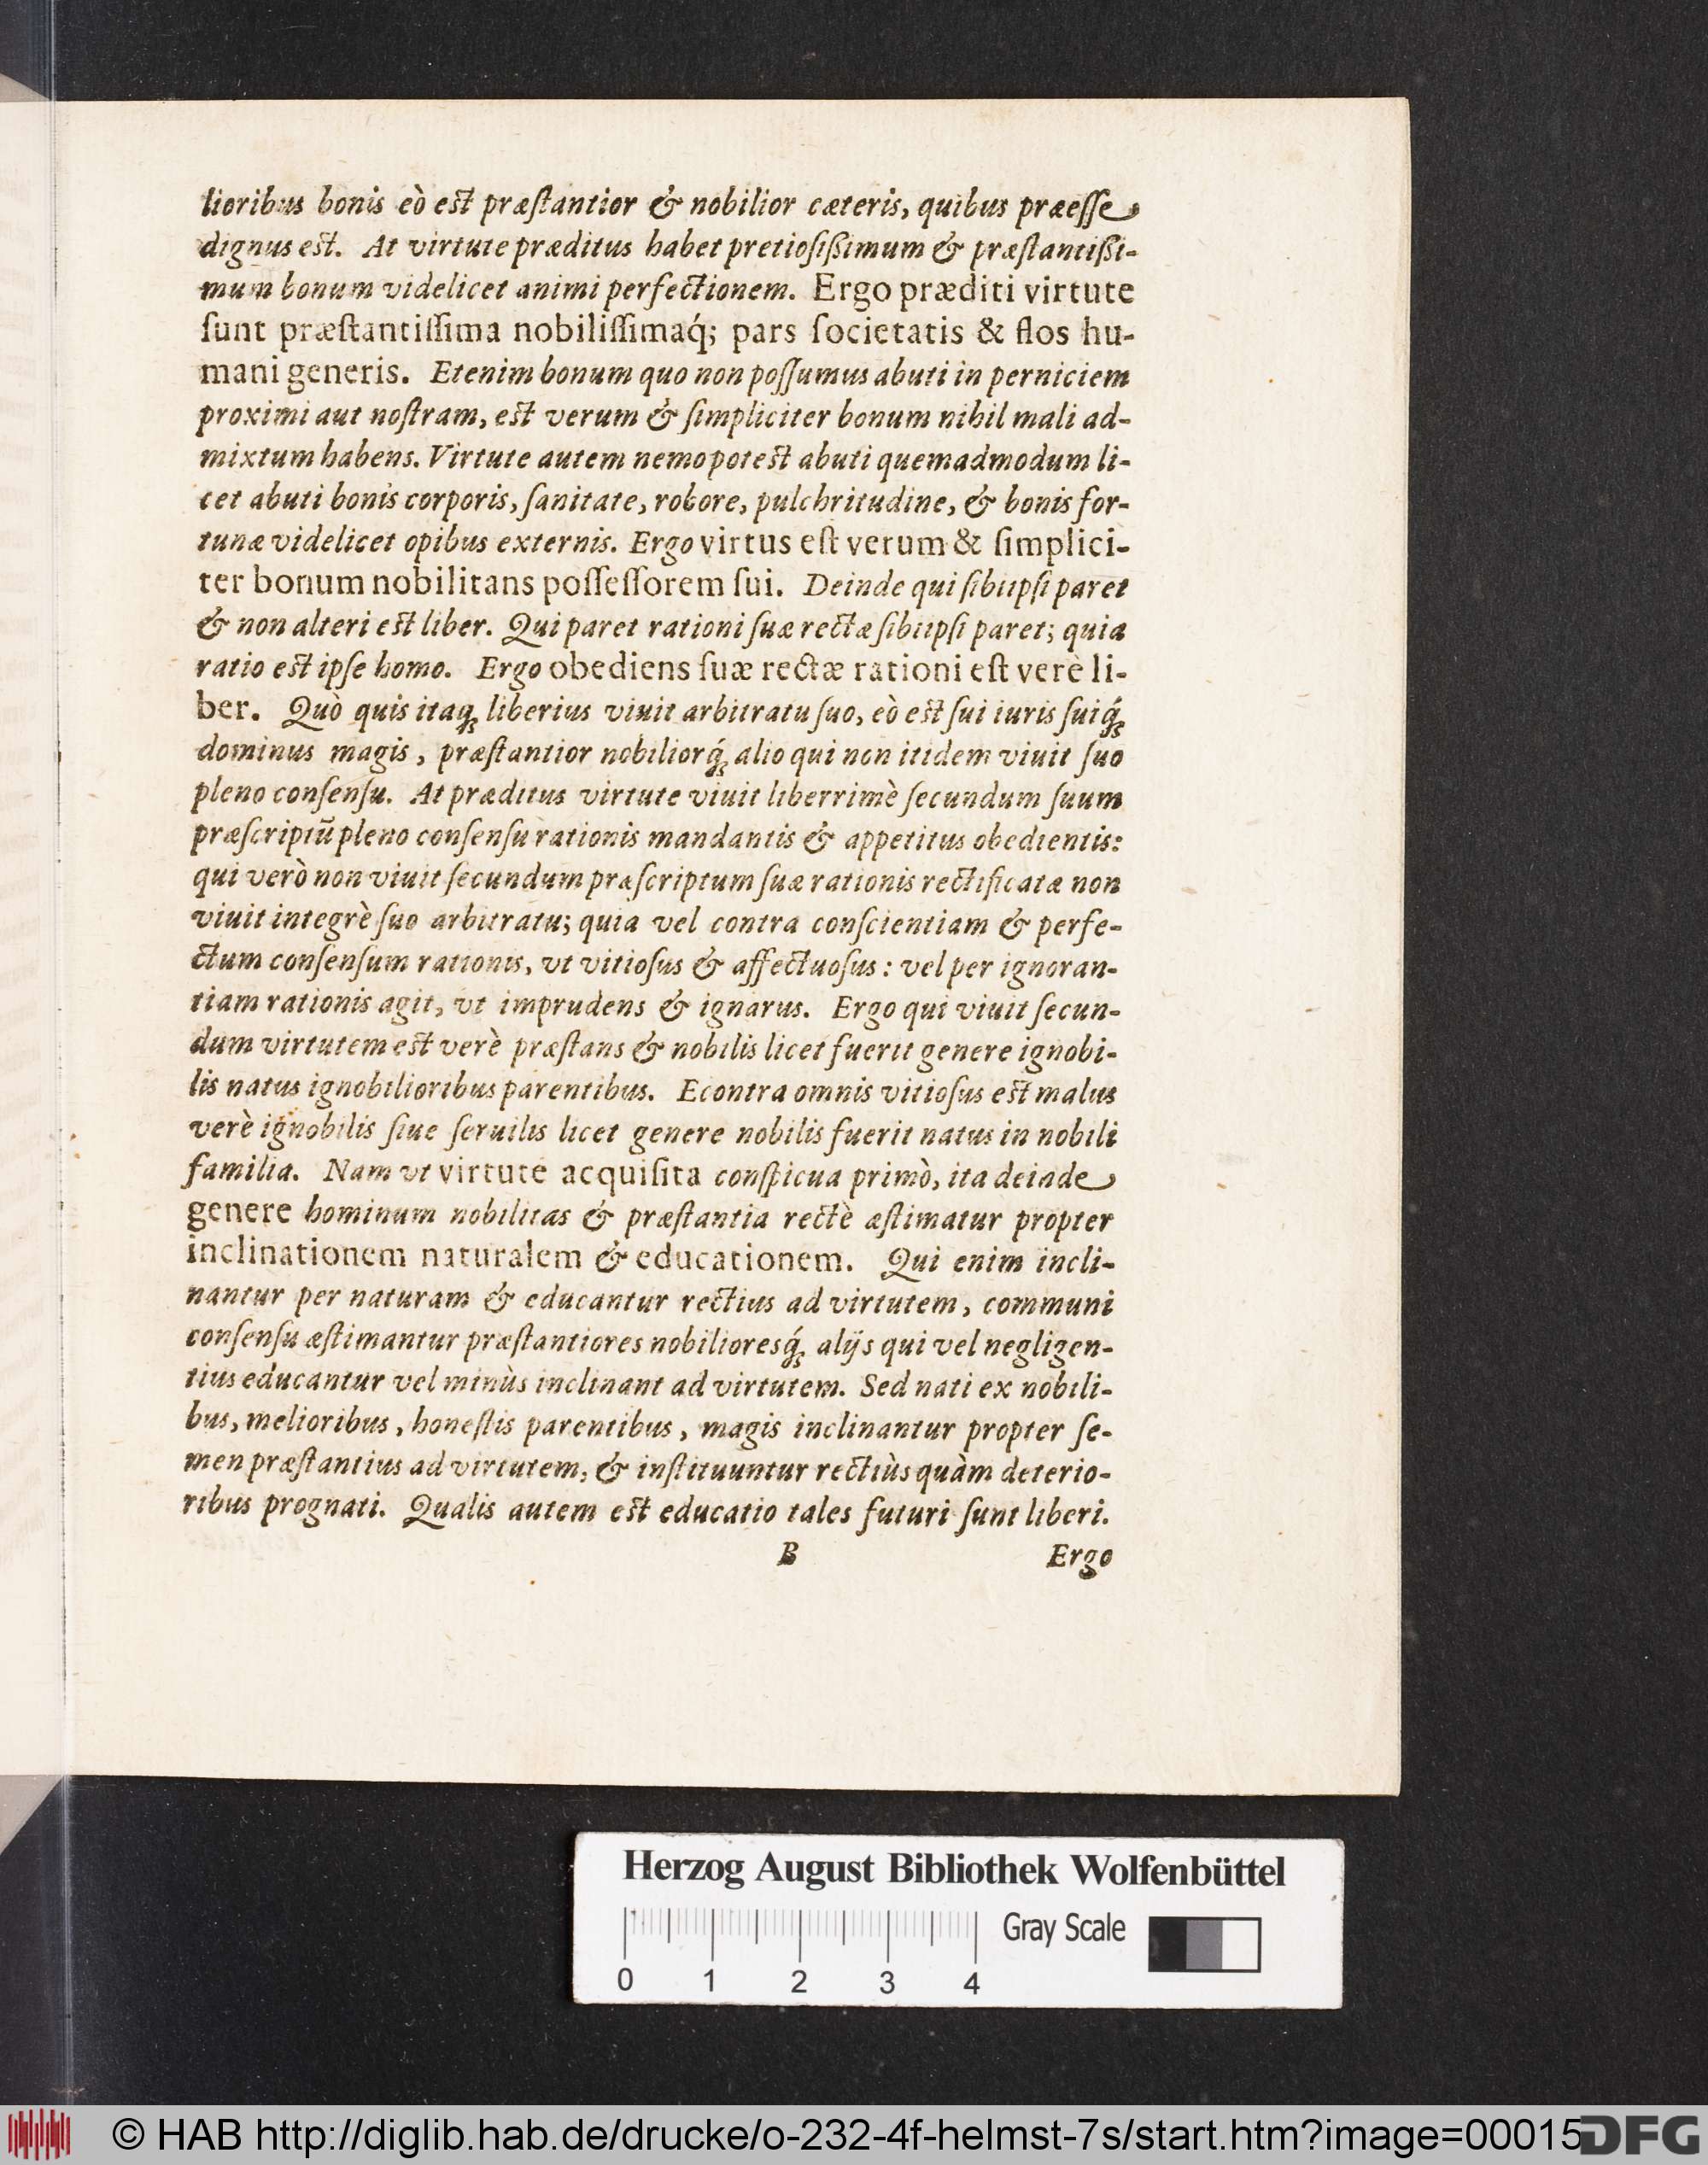 lioribus bonis eò est præſtantior & nobilior cæteris, quibus præeſſe
dignus est. At virtute præditus habet pretioſißimum & præſtantißi-
mum bonum videlicet animi perfectionem. Ergo præditi virtute
ſunt præſtantiſſima nobiliſſimaq́; pars ſocietatis & flos hu-
mani generis. Etenim bonum quo non poſſumus abuti in perniciem
proximi aut noſtram, est verum & ſimpliciter bonum nihil mali ad-
mixtum habens. Virtute autem nemo potest abuti quemadmodum li-
cet abuti bonis corporis, ſanitate, robore, pulchritudine, & bonis for-
tunæ videlicet opibus externis. Ergo virtus eſt verum & ſimplici-
ter bonum nobilitans poſſeſſorem ſui. Deinde qui ſibiipſi paret
& non alteri est liber. Qui paret rationi ſuæ rectæ ſibiipſi paret; quia
ratio est ipſe homo. Ergo obediens ſuæ rectæ rationi eſt verè li-
ber. Quò quis itaq; liberius viuit arbitratu ſuo, eò est ſui iuris ſuiq́;
dominus magis, præſtantior nobiliorq́; alio qui non itidem viuit ſuo
pleno conſenſu. At præditus virtute viuit liberrimè ſecundum ſuum
præſcriptũ pleno conſenſu rationis mandantis & appetitus obedientis:
qui verò non viuit ſecundum præſcriptum ſuæ rationis rectificatæ non
viuit integrè ſuo arbitratu; quia vel contra conſcientiam & perfe-
ctum conſenſum rationis, vt vitioſus & affectuoſus: vel per ignoran-
tiam rationis agit, vt imprudens & ignarus. Ergo qui viuit ſecun-
dum virtutem est verè præſtans & nobilis licet fuerit genere ignobi-
lis natus ignobilioribus parentibus. Econtra omnis vitioſus est malus
verè ignobilis ſiue ſeruilis licet genere nobilis fuerit natus in nobili
familia. Nam vt virtute acquiſita conſpicua primò, ita deinde
genere hominum nobilitas & præſtantia rectè æſtimatur propter
inclinationem naturalem & educationem. Qui enim incli-
nantur per naturam & educantur rectius ad virtutem, communi
conſenſu æſtimantur præſtantiores nobilioresq́; alijs qui vel negligen-
tius educantur vel minùs inclinant ad virtutem. Sed nati ex nobili-
bus, melioribus, honeſtis parentibus, magis inclinantur propter ſe-
men præſtantius ad virtutem, & inſtituuntur rectiùs quàm deterio-
ribus prognati. Qualis autem est educatio tales futuri ſunt liberi.
B Ergo
Herzog August Bibliothek Wolfenbüttel
Gray Scale
0 1 2 3 4
© HAB http://diglib.hab.de/drucke/o-232-4f-helmst-7s/start.htm?image=00015
DFG